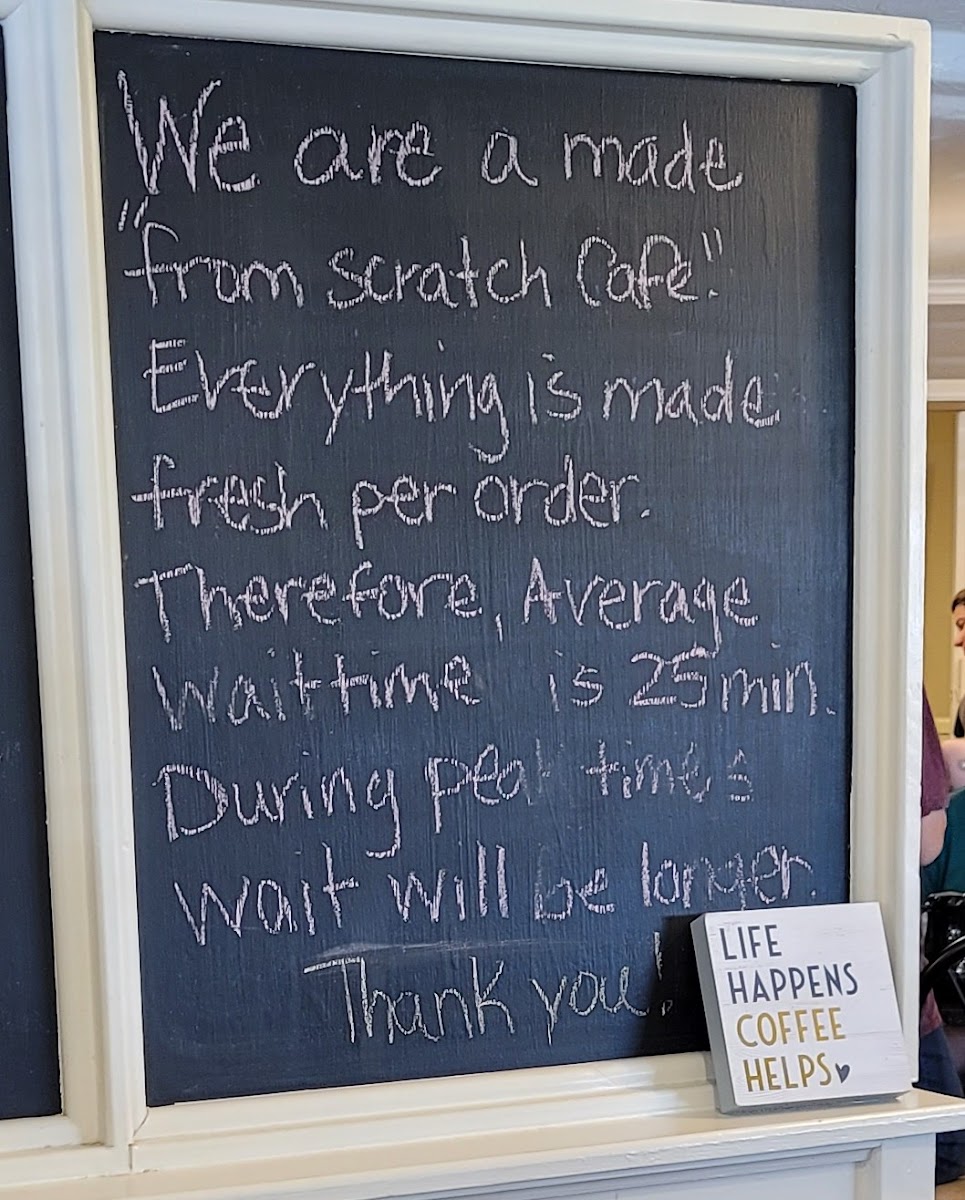 We are a made
"from scratch Cafe."
Everything is made
fresh per order.
Therefore, Average
wait time is 25 min.
During peak times
wait will be longer.
Thank you!
LIFE
HAPPENS
COFFEE
HELPS♥